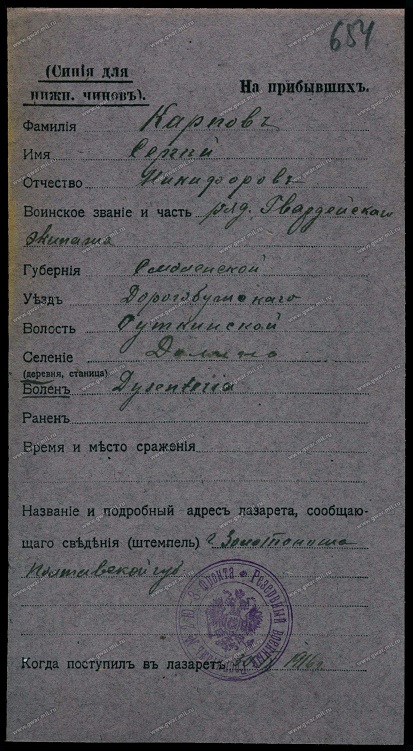 654
(Синія для
нижн. чиновъ).
На прибывшихъ.
Фамилія Карповъ
Имя Сергій
Отчество Никифоровъ
Воинское званіе и часть ряд. Гвардейскаго
Экипажа
Губернія Смоленской
Уѣздъ Дорогобужскаго
Волость
Селеніе
(деревня, станица)
Боленъ Dysenteria
Раненъ
Время и мѣсто сраженія
Названіе и подробный адресъ лазарета, сообщаю-
щаго свѣдѣнія (штемпель) г. Золотоноша
Полтавской губ.
Когда поступилъ въ лазаретъ 1916 г.